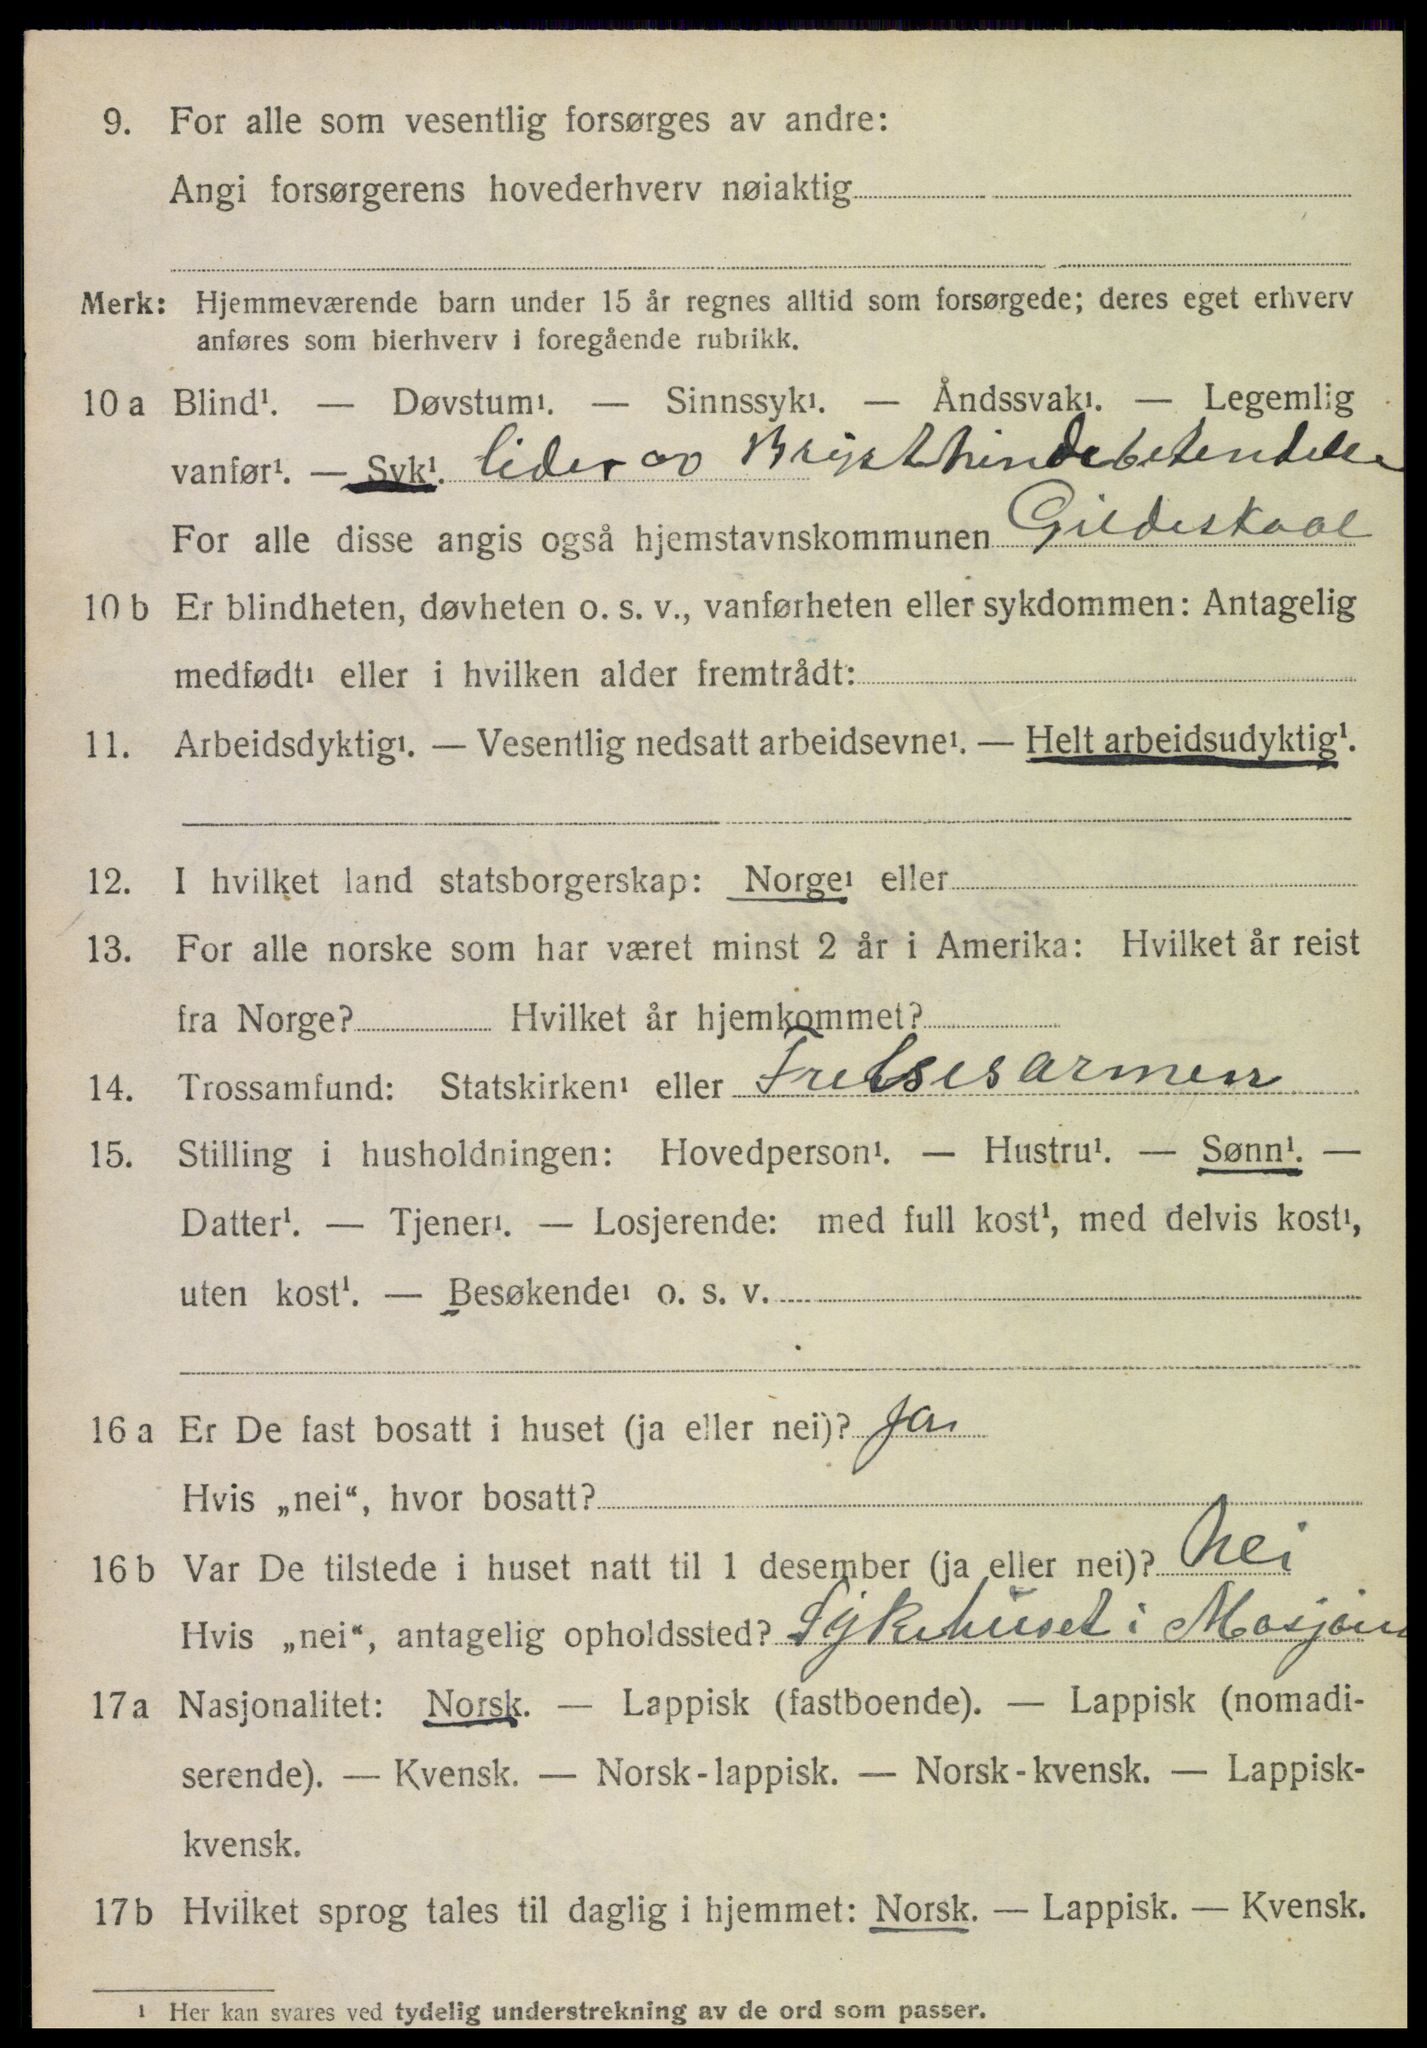 9. For alle som vesentlig forsørges av andre:
Angi forsørgerens hovederhverv nøiaktig
Merk: Hjemmeværende barn under 15 år regnes alltid som forsørgede; deres eget erhverv
anføres som bierhverv i foregående rubrikk.
10 a Blind¹. — Døvstum¹. — Sinnssyk¹. — Åndssvak¹. — Legemlig
vanfør¹. — Syk¹. lider av Brysthindebetendelse
For alle disse angis også hjemstavnskommunen Gildeskaal
10 b Er blindheten, døvheten o. s. v., vanførheten eller sykdommen: Antagelig
medfødt¹ eller i hvilken alder fremtrådt:
11. Arbeidsdyktig¹. — Vesentlig nedsatt arbeidsevne¹. — Helt arbeidsudyktig¹.
12. I hvilket land statsborgerskap: Norge¹ eller
13. For alle norske som har været minst 2 år i Amerika: Hvilket år reist
fra Norge? Hvilket år hjemkommet?
14. Trossamfund: Statskirken¹ eller Frelsesarmen
15. Stilling i husholdningen: Hovedperson¹. — Hustru¹. — Sønn¹. —
Datter¹. — Tjener¹. — Losjerende: med full kost¹, med delvis kost¹,
uten kost¹. — Besøkende¹ o. s. v.
16 a Er De fast bosatt i huset (ja eller nei)? Ja
Hvis „nei“, hvor bosatt?
16 b Var De tilstede i huset natt til 1 desember (ja eller nei)? Nei
Hvis „nei“, antagelig opholdssted? Sykehuset i Mosjøen
17 a Nasjonalitet: Norsk. — Lappisk (fastboende). — Lappisk (nomadi-
serende). — Kvensk. — Norsk-lappisk. — Norsk-kvensk. — Lappisk-
kvensk.
17 b Hvilket sprog tales til daglig i hjemmet: Norsk. — Lappisk. — Kvensk.
¹ Her kan svares ved tydelig understrekning av de ord som passer.